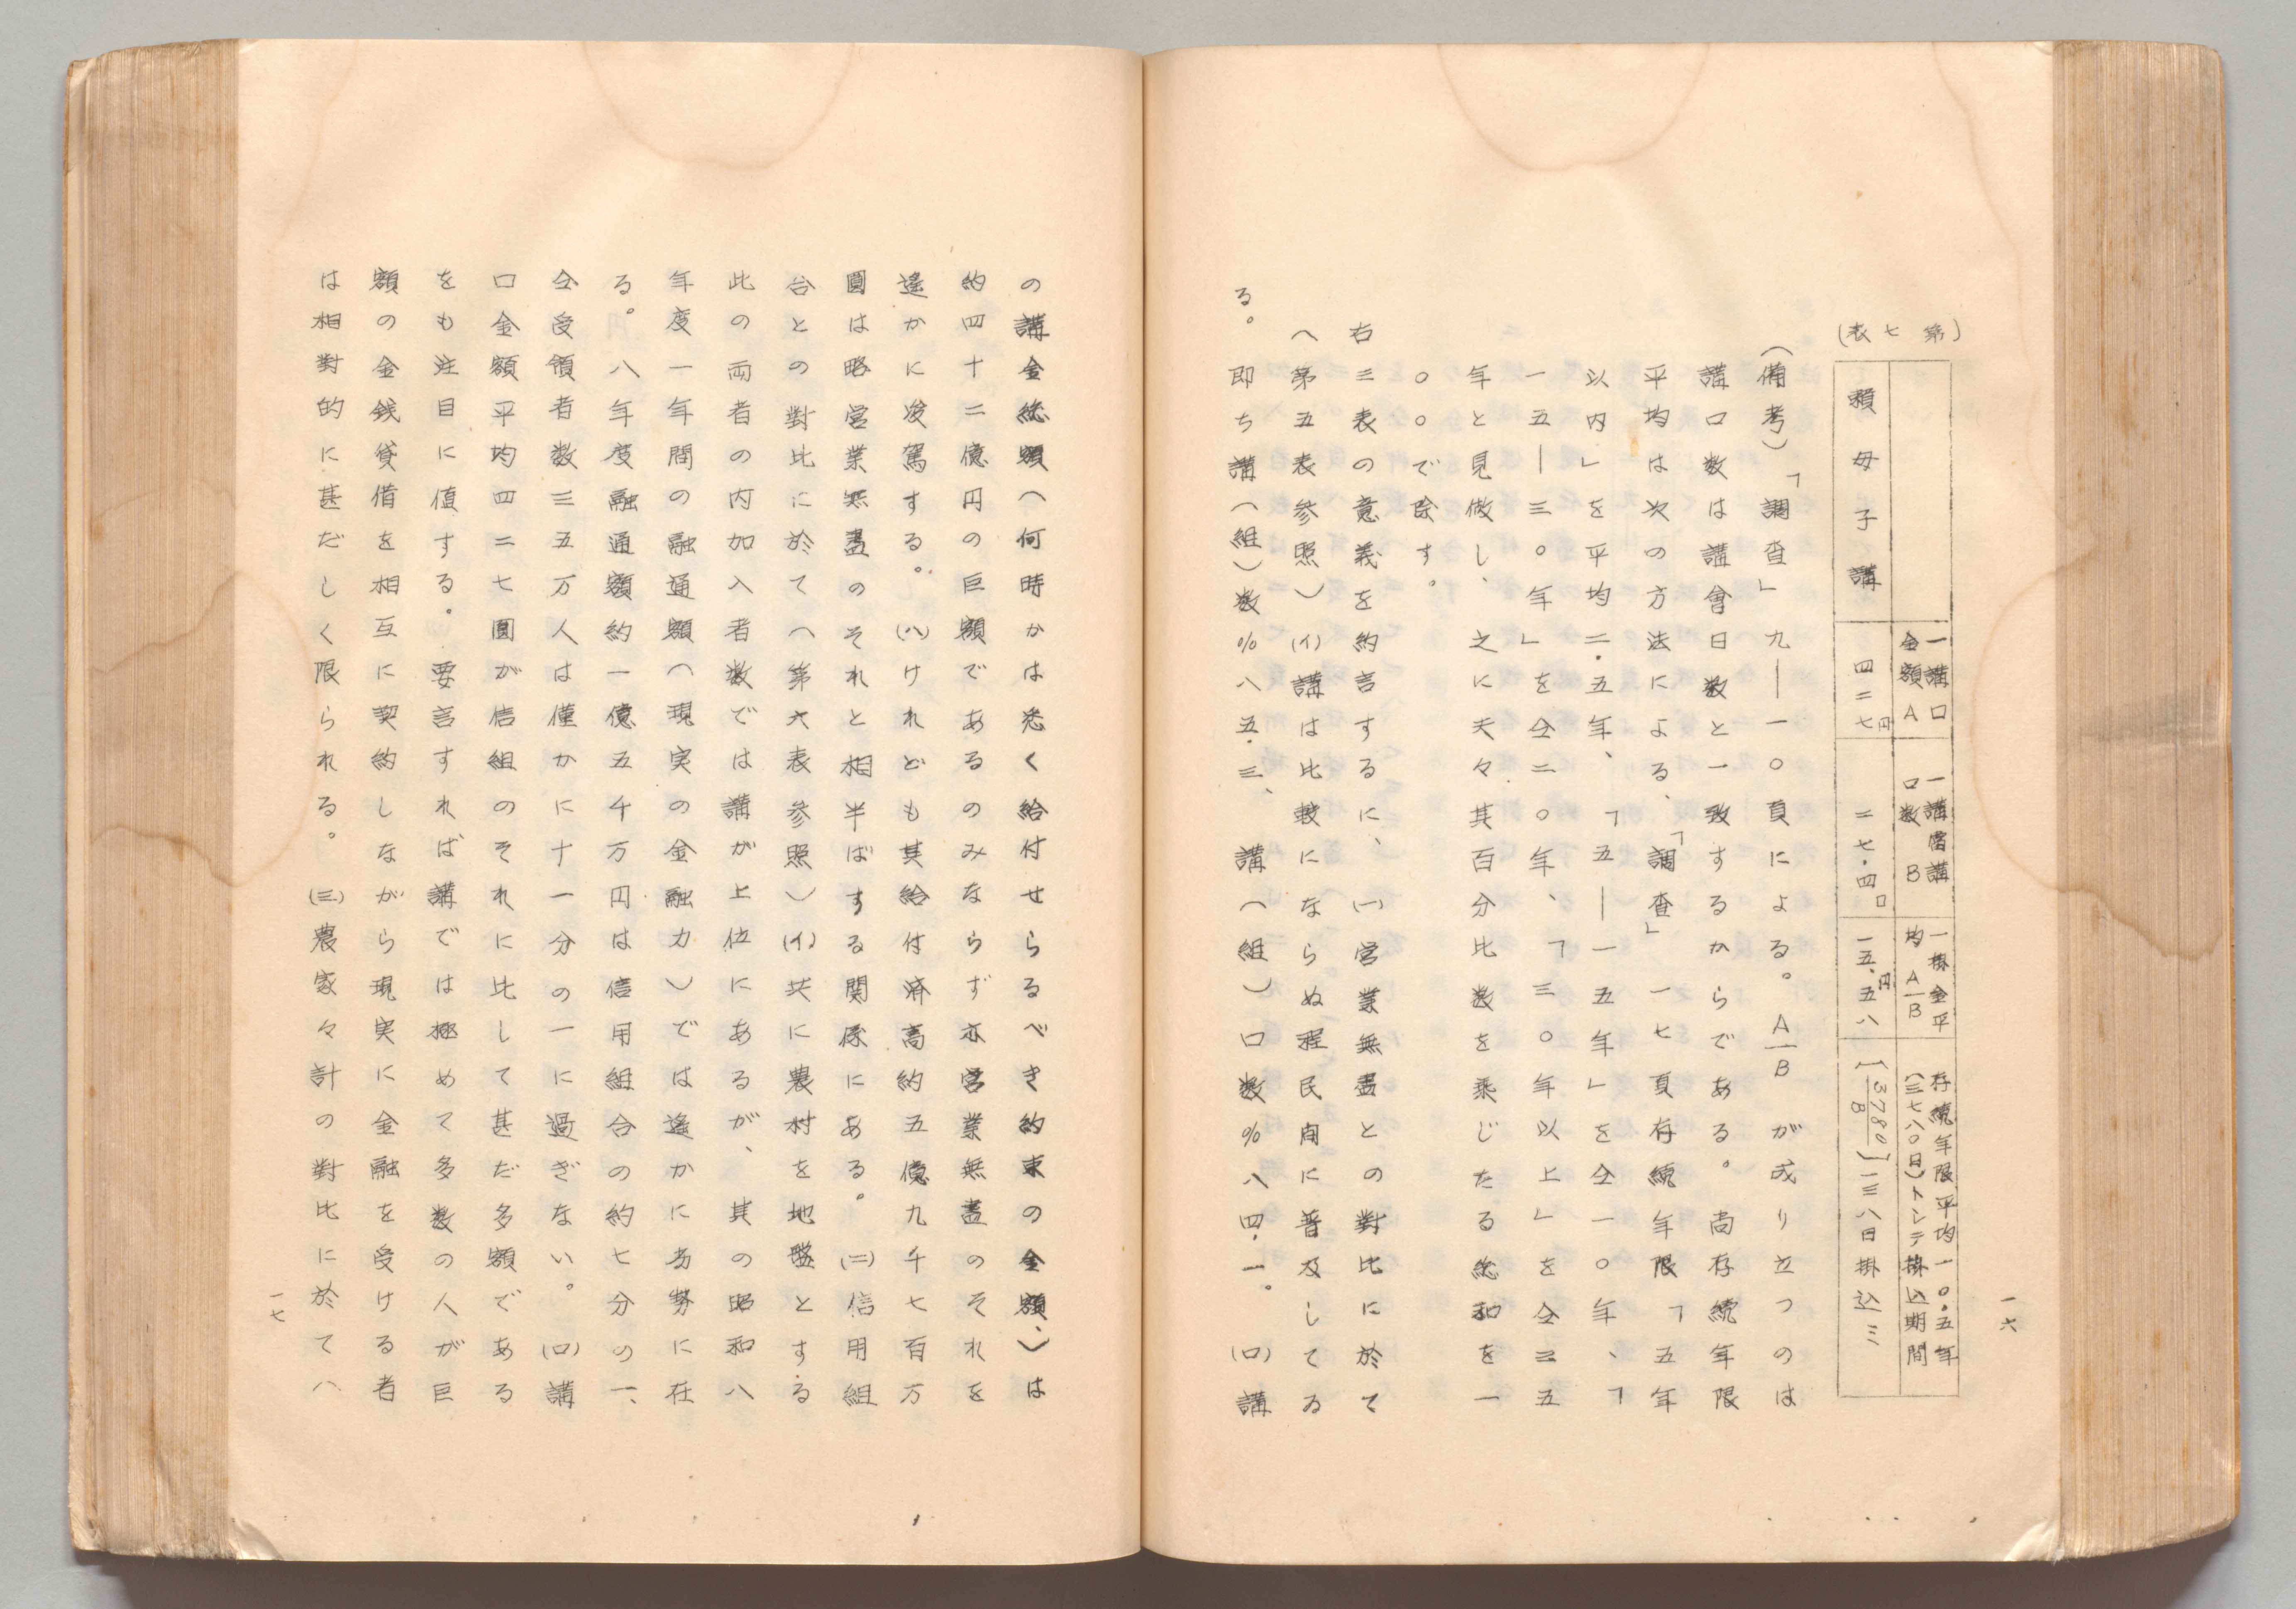 一六
(第七表)
一講口金額A
一講當講口数B
一掛金平均A/B
存続年限平均一〇.五年(三七八〇日)トシテ掛込期間
頼母子講
四二七円
二七.四口
一五.五八円
(3780/B)一三八日掛込ミ
(備考)「調査」九—一〇頁による。A/Bが成り立つのは
講口数は講會日数と一致するからである。尚存続年限
平均は次の方法による、「調査」一七頁存続年限「五年
以内」を平均二.五年、「五—一五年」を仝一〇年、「
一五—三〇年」を仝二〇年、「三〇年以上」を仝三五
年と見做し、之に夫々其百分比数を乘じたる総和を一
〇〇で除す。
右三表の意義を約言するに、(一)営業無盡との對比に於て
(第五表参照)(イ)講は比較にならぬ程民間に普及してゐ
る。即ち講(組)数%八五.三、講(組)口数%八四.一。(ロ)講
の講金総額(何時かは悉く給付せらるべき約束の金額、)は
約四十二億円の巨額であるのみならず亦営業無盡のそれを
遙かに凌駕する。(ハ)けれども其給付済高約五億九千七百万
圓は略営業無盡のそれと相半ばする関係にある。(二)信用組
合との對比に於て(第六表参照)(イ)共に農村を地盤とする
此の両者の内加入者数では講が上位にあるが、其の昭和八
年度一年間の融通額(現実の金融力)では遙かに劣勢に在
る。八年度融通額約一億五千万円は信用組合の約七分の一、
仝受領者数三五万人は僅かに十一分の一に過ぎない。(ロ)講
口金額平均四二七圓が信組のそれに比して甚だ多額である
をも注目に値する。要言すれば講では極めて多数の人が巨
額の金銭貸借を相互に契約しながら現実に金融を受ける者
は相對的に甚だしく限られる。(三)農家々計の對比に於て(
一七